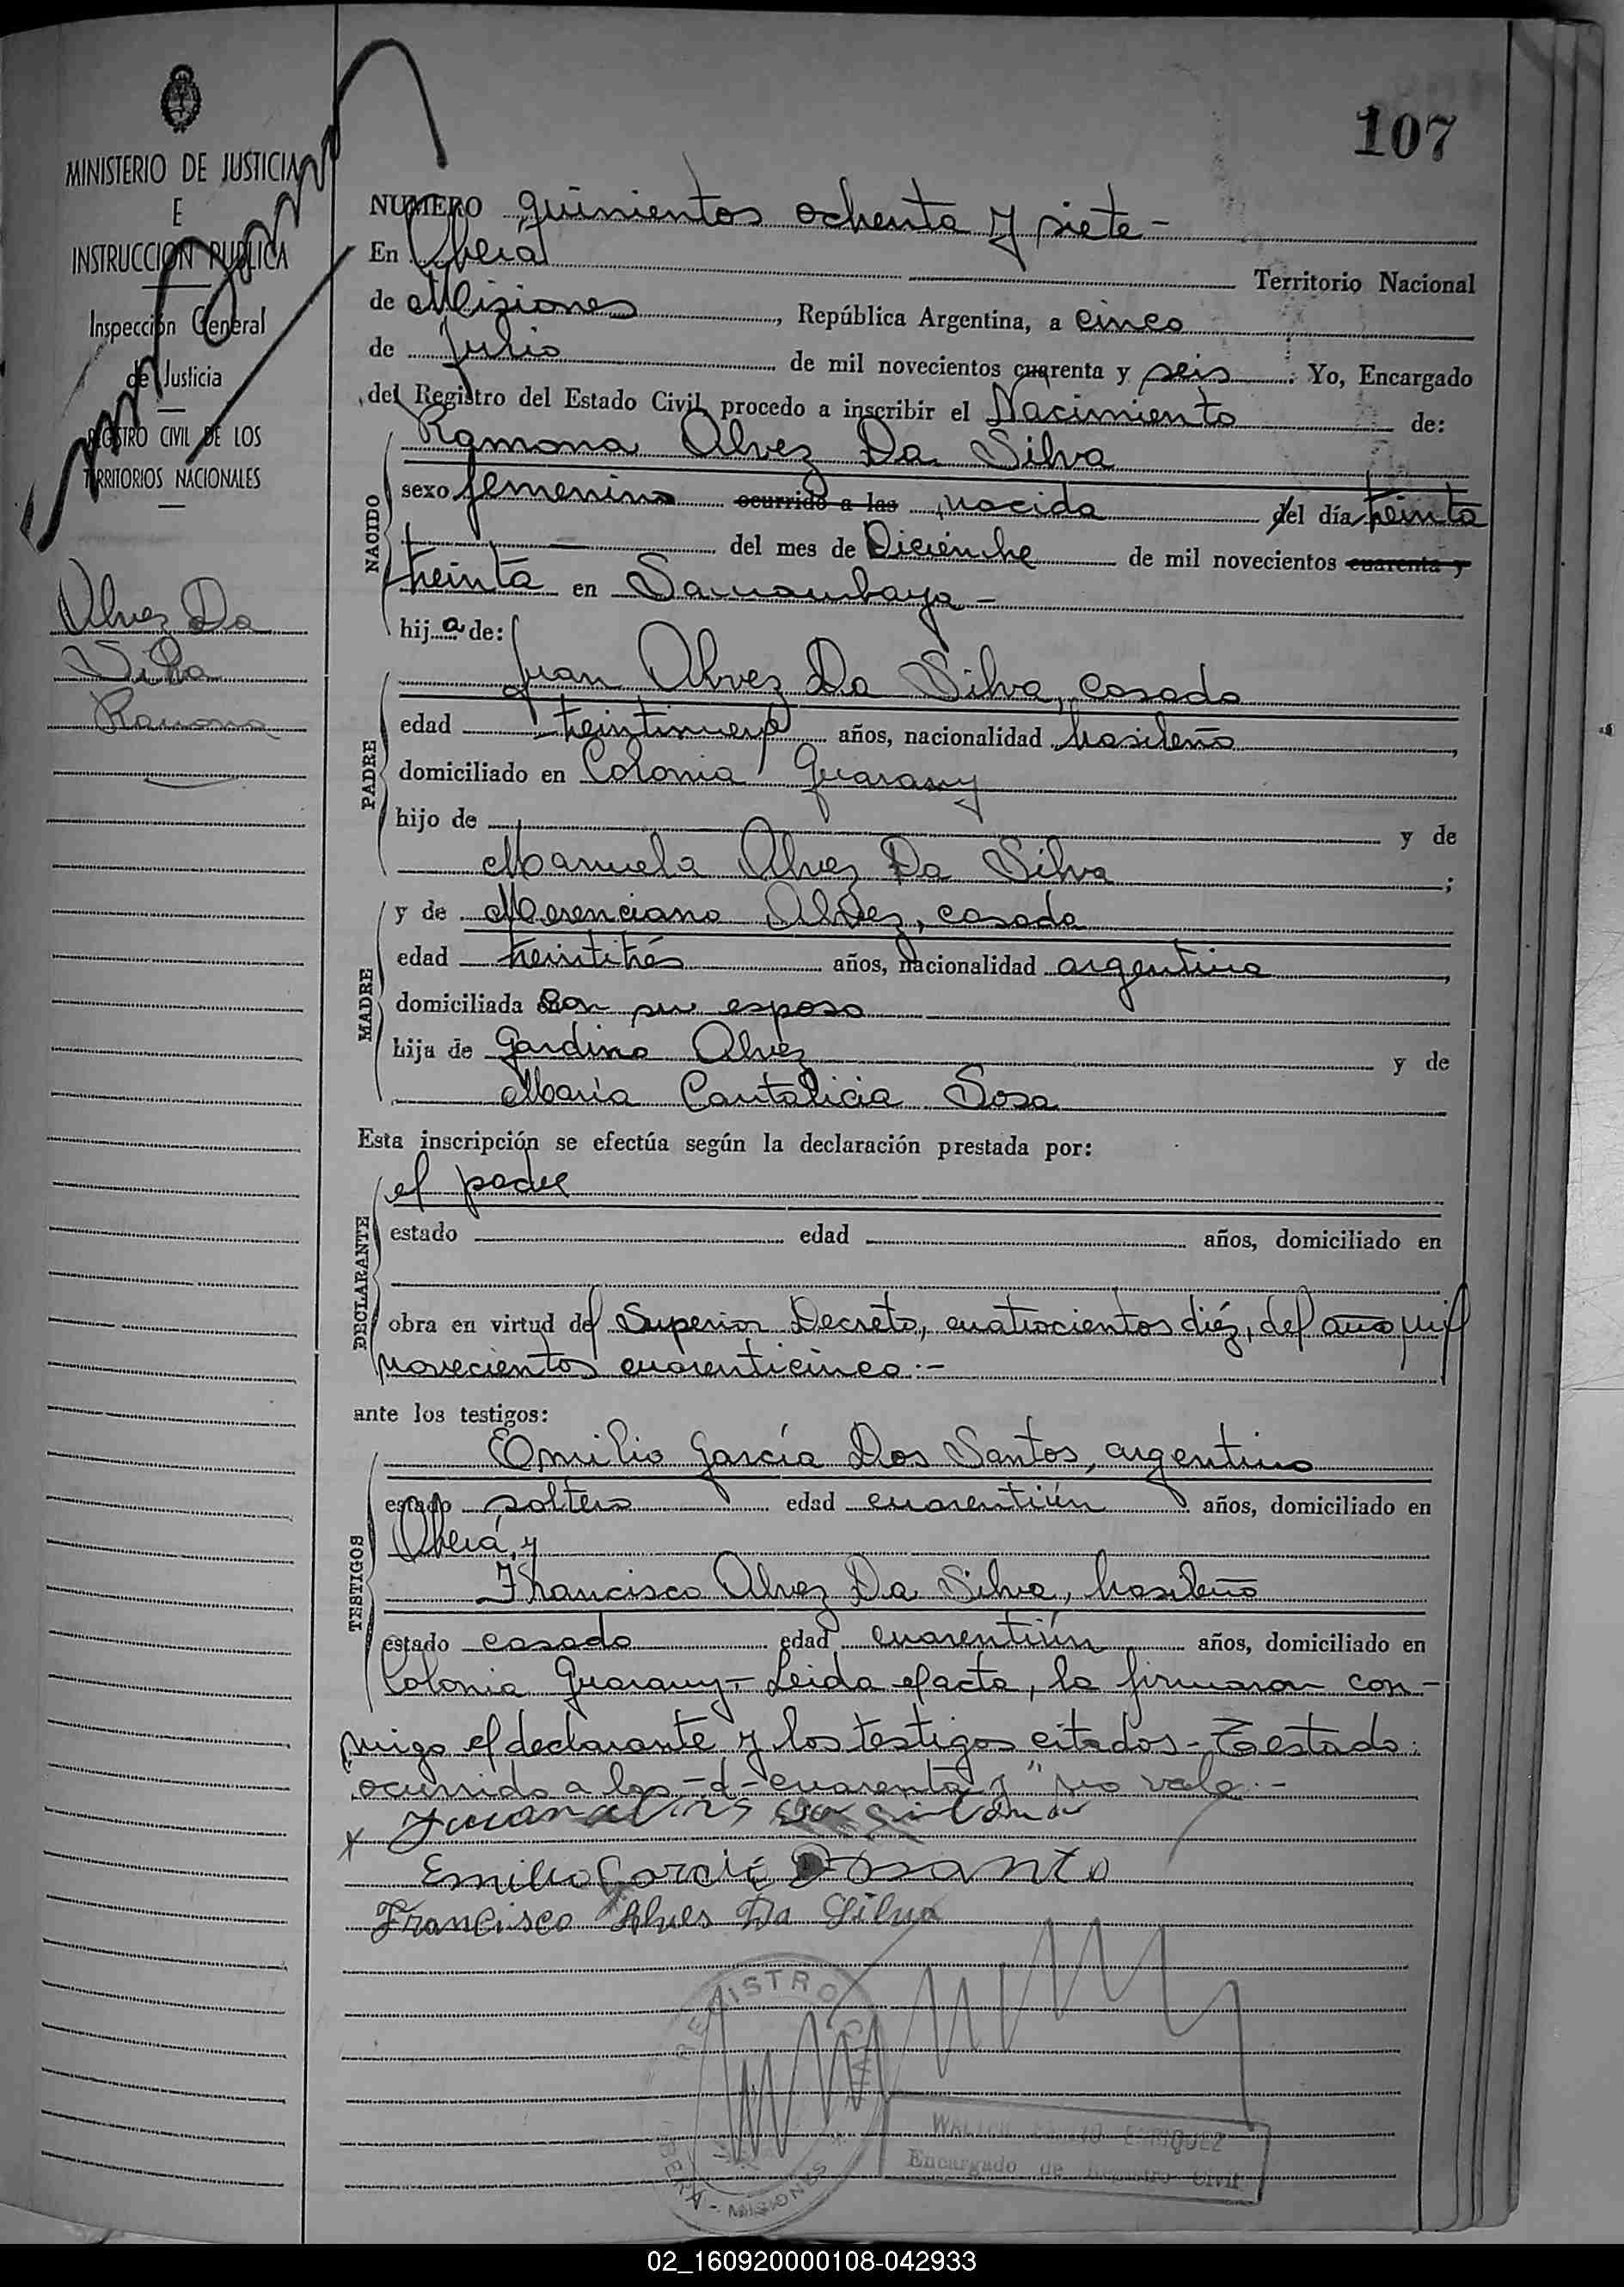 107
MINISTERIO DE JUSTICIA
E
INSTRUCCION PUBLICA
Inspección General
de Justicia
REGISTRO CIVIL DE LOS
TERRITORIOS NACIONALES
Alvez Da
Silva
Ramona
NUMERO quinientos ochenta y siete -
En Oberá Territorio Nacional
de Misiones, República Argentina, a cinco
de Julio de mil novecientos cuarenta y seis. Yo, Encargado
del Registro del Estado Civil, procedo a inscribir el Nacimiento de:
Ramona Alvez Da Silva
NACIDO
sexo femenino ocurrido a las nacida del día treinta
del mes de Diciembre de mil novecientos cuarenta y
treinta en Samambaya -
hija de:
Juan Alvez Da Silva, casado
PADRE
edad treintinueve años, nacionalidad brasileño,
domiciliado en Colonia Guarany
hijo de y de
Manuela Alvez Da Silva;
y de Merenciana Alvez, casada
MADRE
edad treintitrés años, nacionalidad argentina,
domiciliada con su esposo
hija de Gardino Alvez y de
María Cantalicia Sosa
Esta inscripción se efectúa según la declaración prestada por:
el padre
DECLARANTE
estado edad años, domiciliado en
obra en virtud del Superior Decreto, cuatrocientos diéz, del año mil
novecientos cuarenticinco.-
ante los testigos:
Emilio García Dos Santos, argentino
TESTIGOS
estado soltero edad cuarentiún años, domiciliado en
Oberá, y
Francisco Alvez Da Silva, brasileño
estado casado edad cuarentiún años, domiciliado en
Colonia Guarany - Leida el acta, la firmaron con-
migo el declarante y los testigos citados - Testado:
ocurrido a las -d- cuarenta y "no vale.-
Emilio Garcia Dosanto
Francisco Alves Da Silva
REGISTRO CIVIL
OBERA - MISIONES
Encargado de Registro Civil
02_160920000108-042933